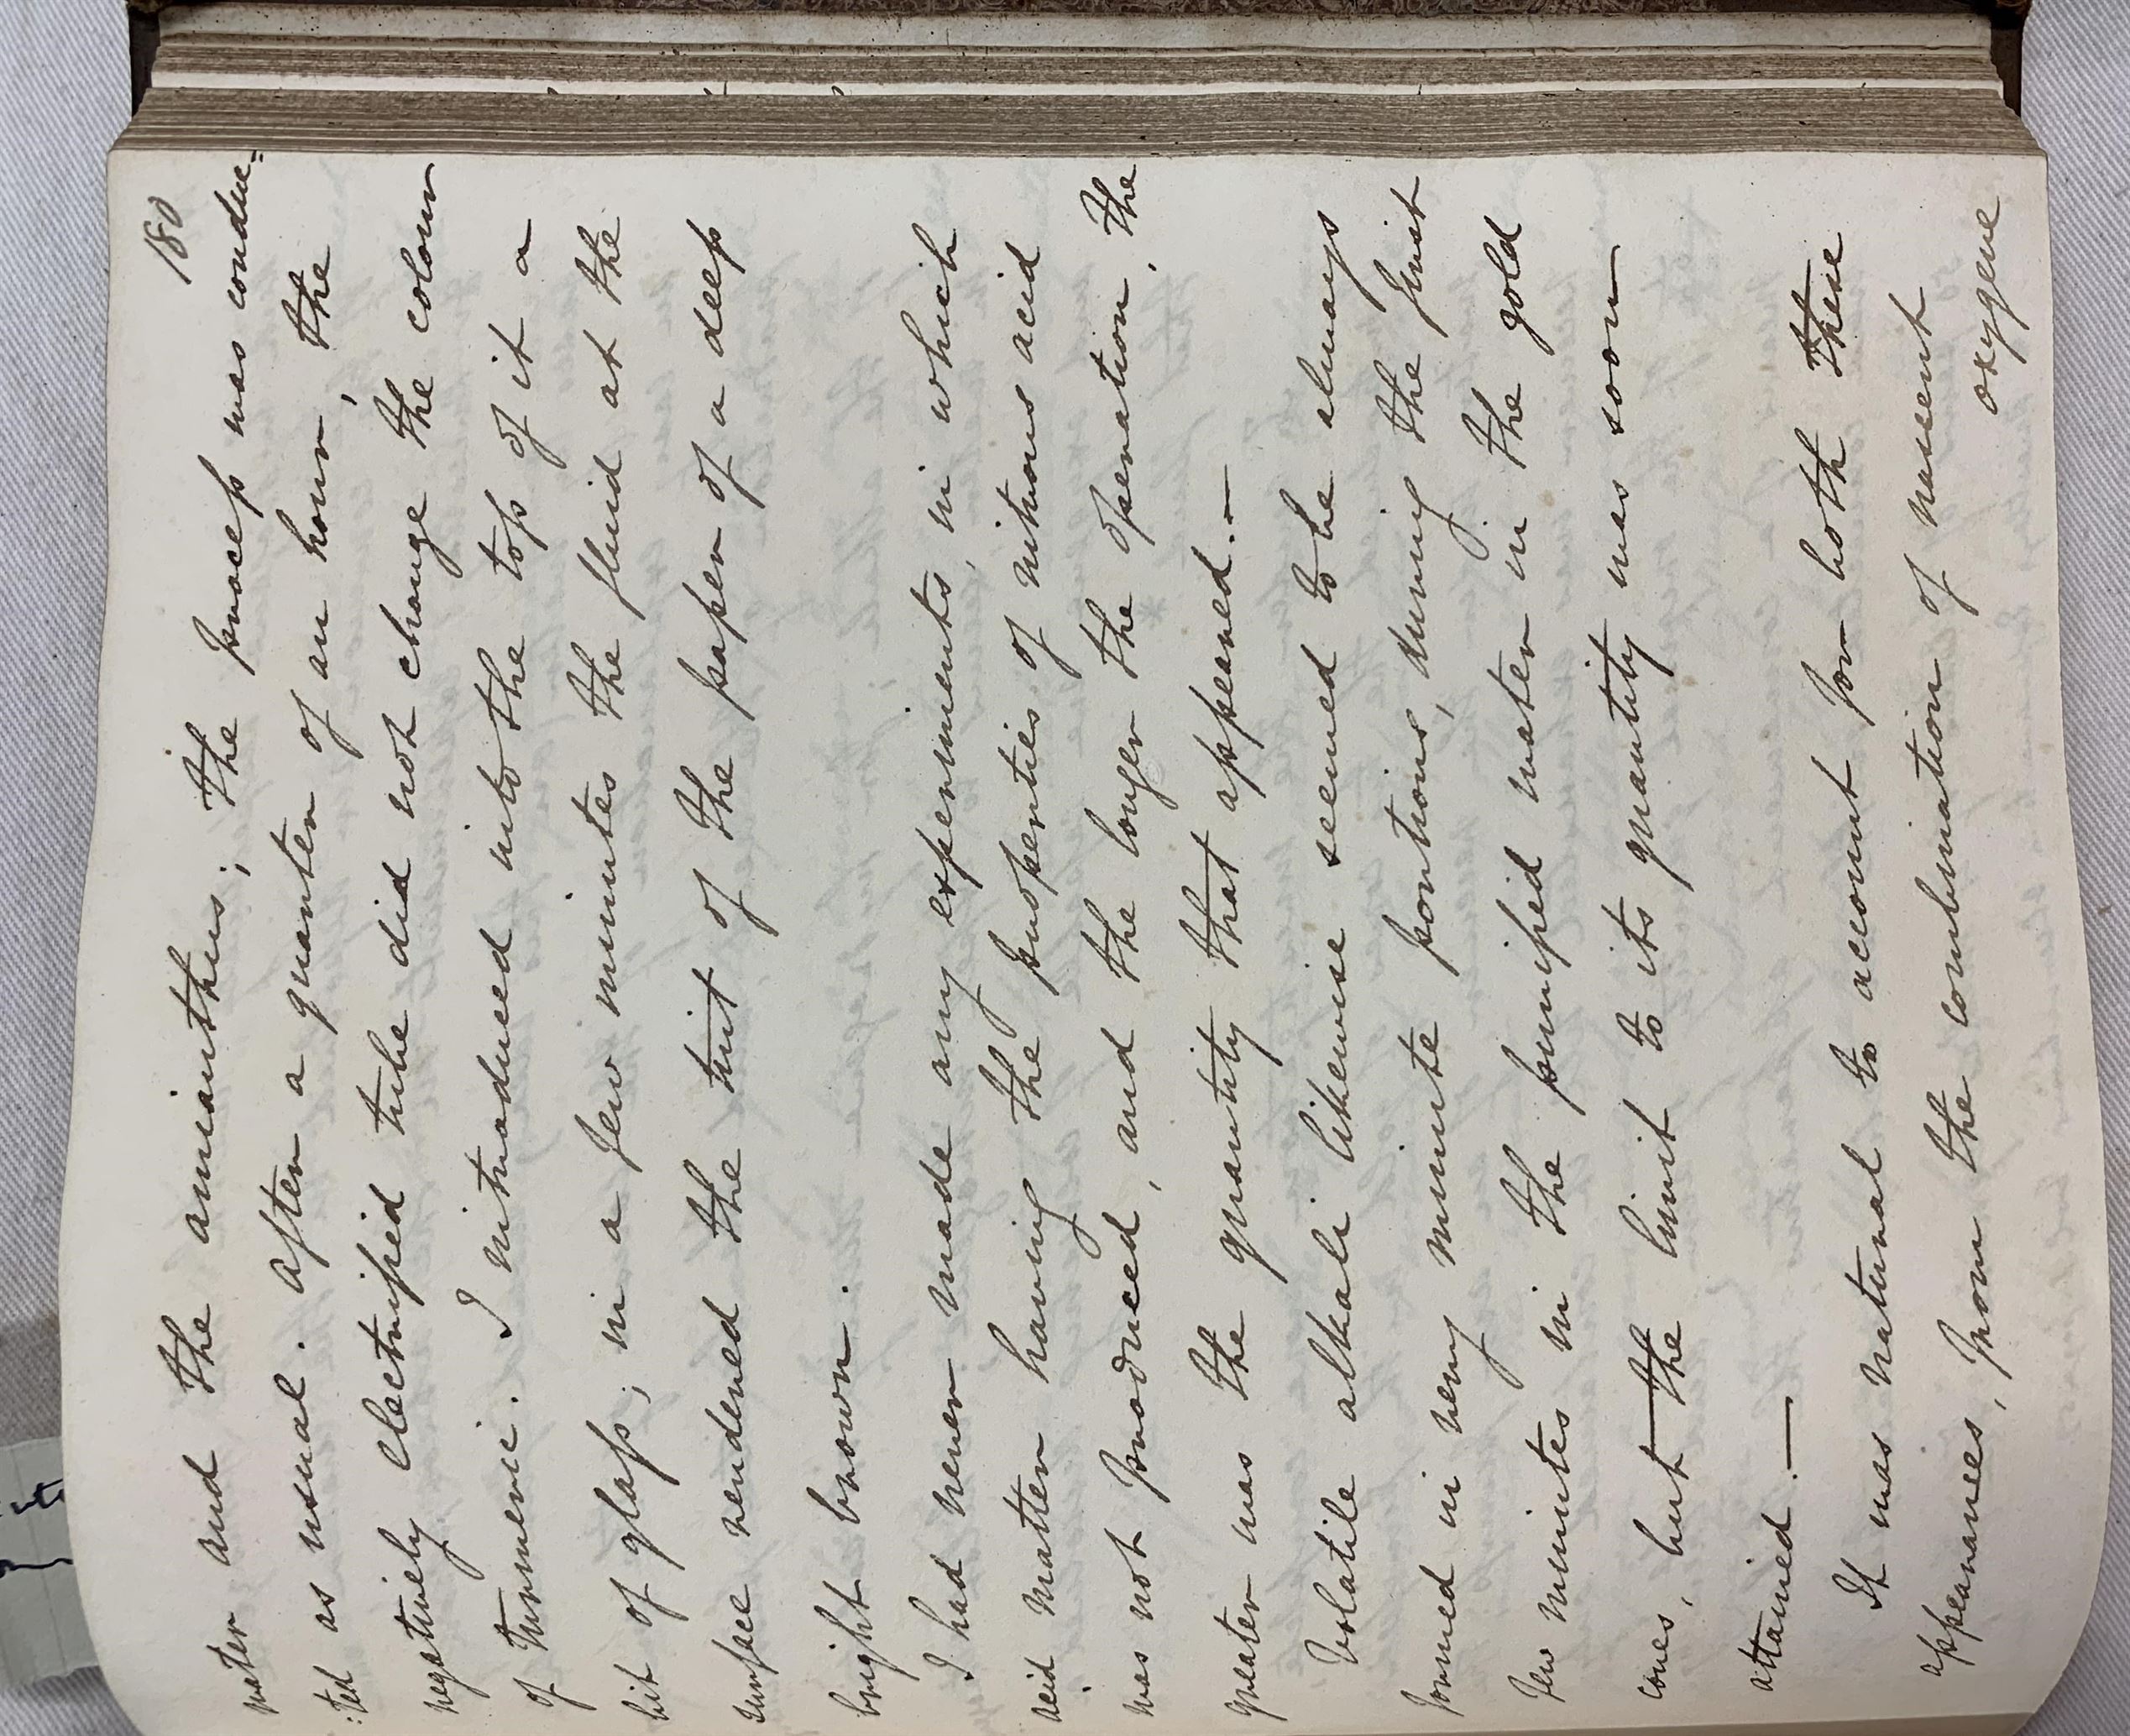 180
water and the amianthus; the process was conduc=
:ted as usual. After a quarter of an hour, the
negatively electrified tube did not change the colour
of turmeric. I introduced into the top of it a
bit of glass; in a few minutes the fluid at the
surface rendered the tint of the paper of a deep
bright brown.
I had never made any experiments, in which
acid matter having the properties of nitrous acid
was not produced, and the longer the operation, the
greater was the quantity that appeared.—
Volatile alkali likewise seemed to be always
formed in very minute portions, during the first
few minutes in the purified water in the gold
cones, but the limit to its quantity was soon
attained.—
It was natural to account for both these
appearances, from the combination of nascent
oxygene